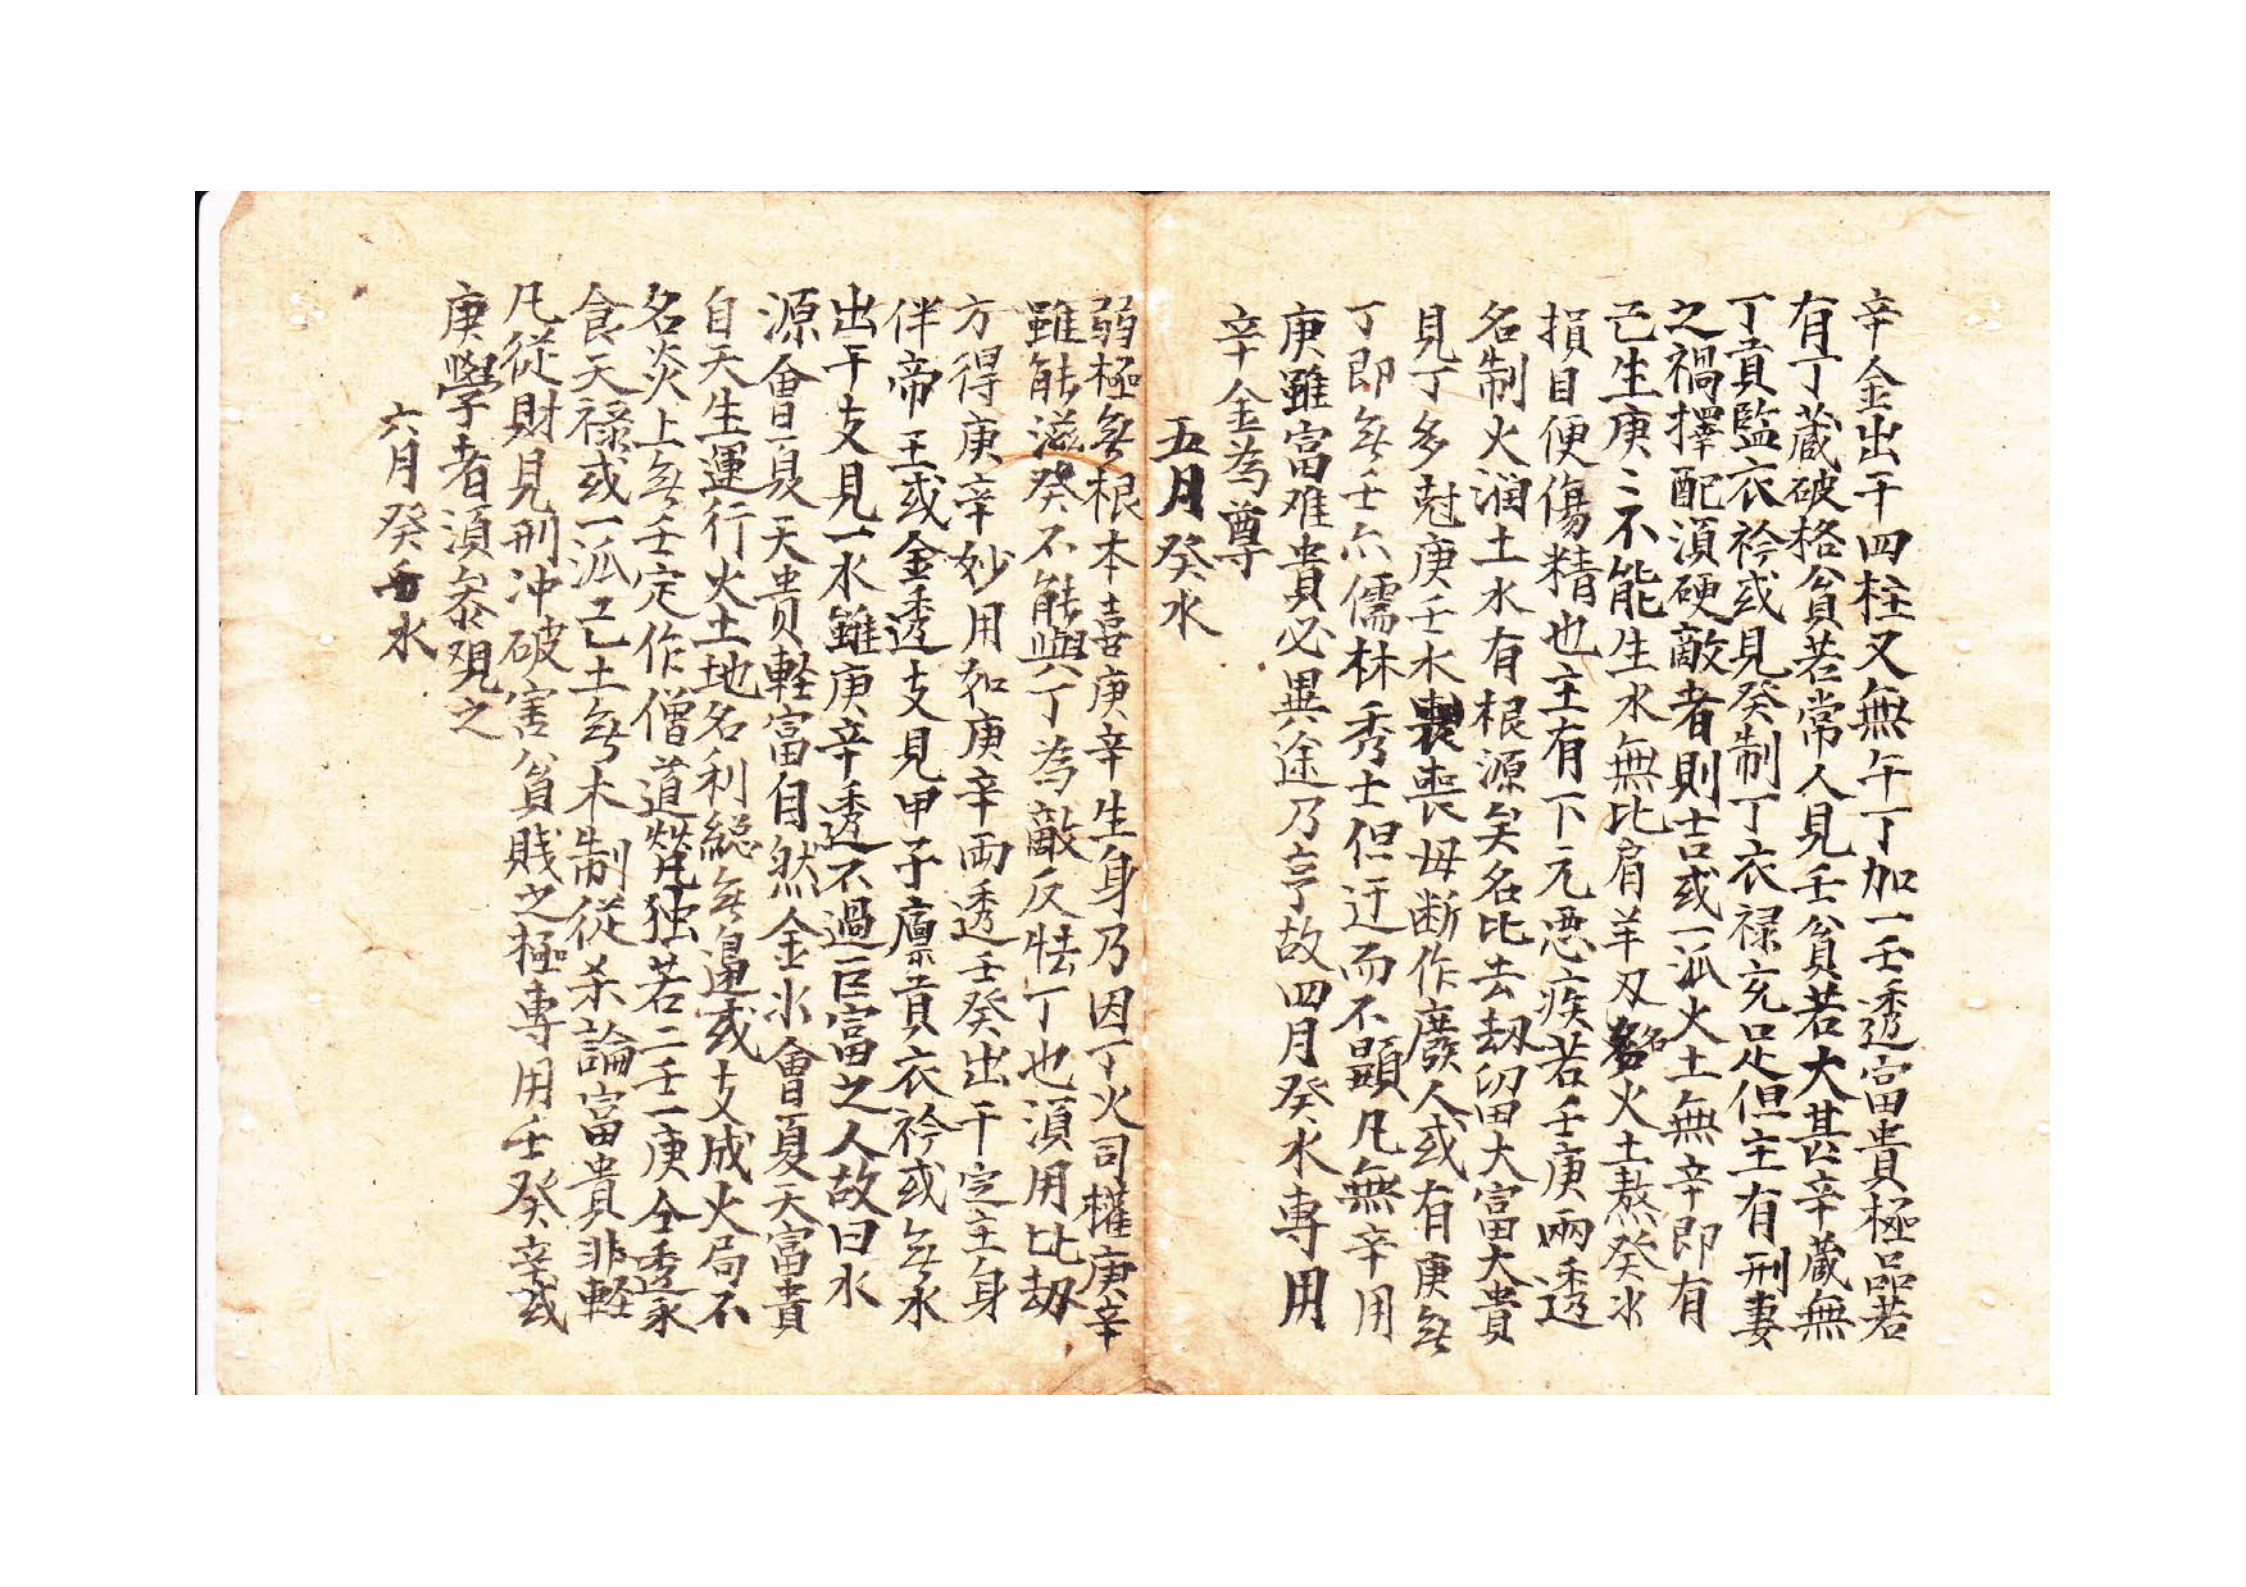 辛金出干四柱又無午丁加一壬透富貴極品若
有丁蔵破格貧若常人見壬貧若大甚辛蔵無
丁貢監衣衿或見癸制丁衣禄充足但主有刑妻
之禍擇配湏硬敵者則吉或一派火土無辛即有
己生庚〻不能生水無比肩羊刃名火土熬癸水
損目便傷精也主有下元悪疾若壬庚兩透
名制火潤土水有根源矣名比去刼留大富大貴
見丁多尅庚壬水喪母断作廢人或有庚無
丁即無壬亦儒林秀士但迂而不顕凡無辛用
庚雖富难貴必異途乃亨故四月癸水專用
辛金為尊
五月癸水
弱極無根本喜庚辛生身乃因丁火司權庚辛
雖能滋癸不能與丁為敵反怯丁也湏用比刼
方得庚辛妙用如庚辛両透壬癸出干定主身
伴帝王或金透支見甲子廪貢衣衿或無水
出干支見一水雖庚辛透不過巨富之人故曰水
源會夏天貴軽富自然金水會夏天富貴
自天生運行火土地名利総無邉或支成火局不
名炎上無壬定作僧道煢独若二壬一庚仝透家
食天禄或一派己土無木制從杀論富貴非軽
凡從財見刑冲破害貧賎之極專用壬癸辛或
庚學者湏叅覌之
六月癸水